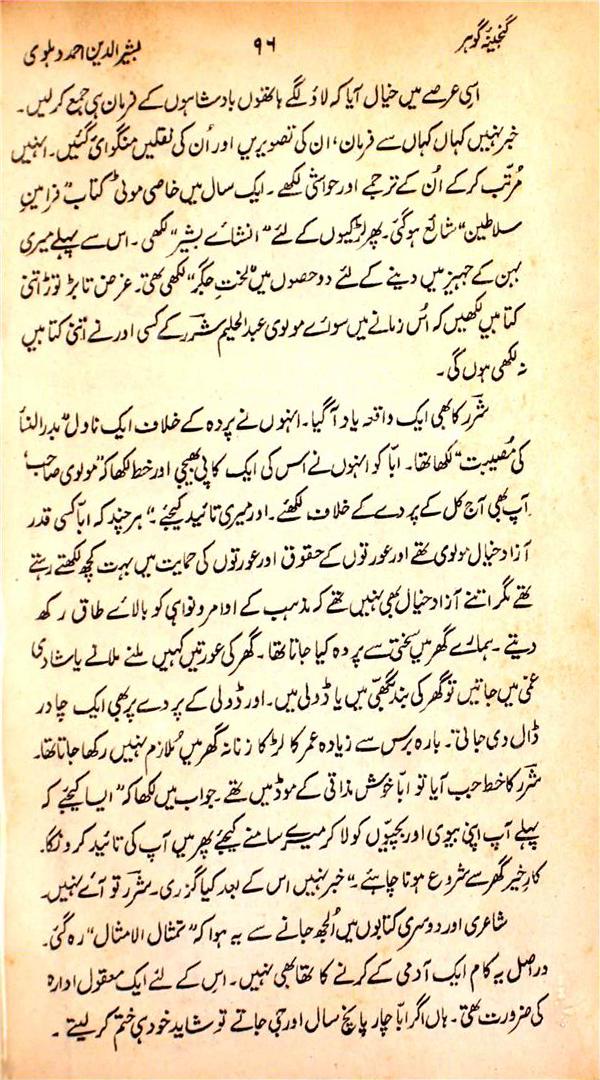 گنجینۂ گوہر ۹۶ بشیر الدین احمد دہلوی
اسی عرصے میں خیال آیا کہ لاؤ لگے ہاتھوں بادشاہوں کے فرمان ہی جمع کرلیں۔
خبر نہیں کہاں کہاں سے فرمان، ان کی تصویریں اور اُن کی نقلیں منگوائی گئیں۔ انہیں
مُرتّب کرکے اُن کے ترجمے اور حواشی لکھے۔ ایک سال میں خاصی موٹی کتاب "فرامینِ
سلاطین" شائع ہوگئی۔ پھر لڑکیوں کے لئے "انشائے بشیر" لکھی۔ اس سے پہلے میری
بہن کے جہیز میں دینے کے لئے دو حصوں میں "لختِ جگر" لکھی تھی۔ غرض تابڑ توڑ اتنی
کتابیں لکھیں کہ اُس زمانے میں سوائے مولوی عبدالحلیم شررؔ کے کسی اور نے اتنی کتابیں
نہ لکھی ہوں گی۔
شررؔ کا بھی ایک واقعہ یاد آگیا۔ انہوں نے پردہ کے خلاف ایک ناول "بدرالنساء
کی مُصیبت" لکھا تھا۔ ابّا کو انہوں نے اس کی ایک کاپی بھیجی اور خط لکھا کہ "مولوی صاحب!
آپ بھی آج کل کے پردے کے خلاف لکھئے۔ اور میری تائید کیجئے۔" ہر چند کہ ابّا کسی قدر
آزاد خیال مولوی تھے اور عورتوں کے حقوق اور عورتوں کی حمایت میں بہت کچھ لکھتے رہتے
تھے مگر اتنے آزاد خیال بھی نہیں تھے کہ مذہب کے اوامر و نواہی کو بالائے طاق رکھ
دیتے۔ ہمارے گھر میں سختی سے پردہ کیا جاتا تھا۔ گھر کی عورتیں کہیں ملنے ملانے یا شادی
غمی میں جاتیں تو گھر کی بند گھبّی میں یا ڈولی میں۔ اور ڈولی کے پردے پر بھی ایک چادر
ڈال دی جاتی۔ بارہ برس سے زیادہ عمر کا لڑکا زنانہ گھر میں مُلازم نہیں رکھا جاتا تھا۔
شررؔ کا خط جب آیا تو ابّا خوش مذاقی کے موڈ میں تھے۔ جواب میں لکھا کہ "ایسا کیجئے کہ
پہلے آپ اپنی بیوی اور بچیّوں کو لاکر میرے سامنے کیجئے پھر میں آپ کی تائید کرونگا۔
کارِ خیر گھر سے شروع ہونا چاہئے۔" خبر نہیں اس کے بعد کیا گزری۔ شررؔ تو آئے نہیں۔
شاعری اور دوسری کتابوں میں اُلجھ جانے سے یہ ہوا کہ "تمثال الامثال" رہ گئی۔
دراصل یہ کام ایک آدمی کے کرنے کا تھا بھی نہیں۔ اس کے لئے ایک معقول ادارہ
کی ضرورت تھی۔ ہاں اگر ابّا چار پانچ سال اور جی جاتے تو شاید خود ہی ختم کر لیتے۔